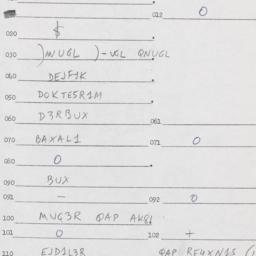 012 O
020 $
030 )MUGL )-UGL QNUGL
040 DEJF1K
050 DOKTE5R1M
060 D3RBUX 061
070 BAXAL1 071 O
080 O
090 BUX
091 – 092 O
100 MUG3R QAP
101 O 102 +
110 EJD1L3R QAP RE4XN1S